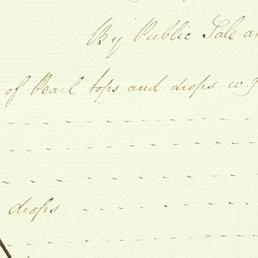 By Public Sale an
of Pearl tops and drops w.g
drops